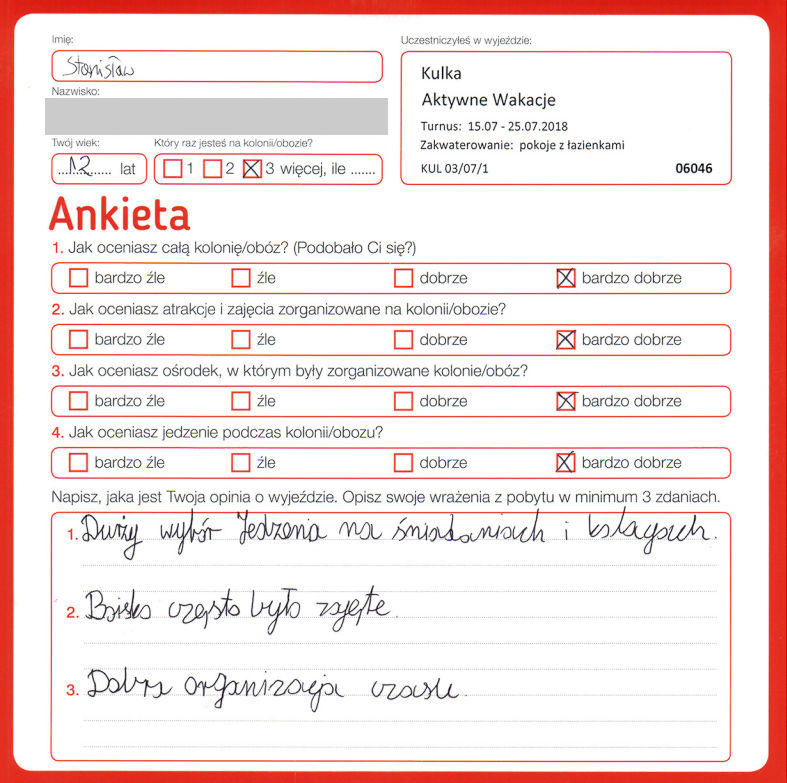 Imię:
Stanisław
Nazwisko:
Twój wiek:
12 lat
Który raz jesteś na kolonii/obozie?
1 2 3 więcej, ile .......
Uczestniczyłeś w wyjeździe:
Kulka
Aktywne Wakacje
Turnus: 15.07 - 25.07.2018
Zakwaterowanie: pokoje z łazienkami
KUL 03/07/1 06046
Ankieta
1. Jak oceniasz całą kolonię/obóz? (Podobało Ci się?)
bardzo źle źle dobrze bardzo dobrze
2. Jak oceniasz atrakcje i zajęcia zorganizowane na kolonii/obozie?
bardzo źle źle dobrze bardzo dobrze
3. Jak oceniasz ośrodek, w którym były zorganizowane kolonie/obóz?
bardzo źle źle dobrze bardzo dobrze
4. Jak oceniasz jedzenie podczas kolonii/obozu?
bardzo źle źle dobrze bardzo dobrze
Napisz, jaka jest Twoja opinia o wyjeździe. Opisz swoje wrażenia z pobytu w minimum 3 zdaniach.
1. Duży wybór Jedzenia na śniadaniach i kolacjach.
2. Boisko często było zajęte.
3. Dobra organizacja czasu.